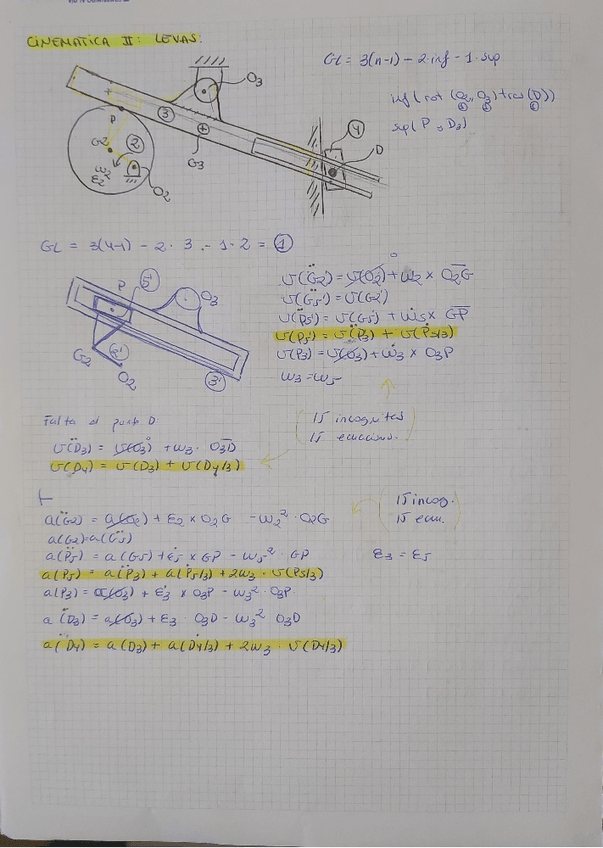 CINEMATICA II: LEVAS.
GL = 3(n-1) - 2·inf - 1·sup
inf (rot (O2, O3) tras (D))
sup( P , D3)
O3
3
P
4
D
G2
2
G3
ω2
ε2
O2
GL = 3(4-1) - 2· 3 - 1·2 = 1
P
5
O3
G2
2
O2
3
v(G2) = v(O2) + ω2 × O2G
v(G5) = v(G2)
v(P5) = v(G5) + ω5 × GP
v(P5) = v(P3) + v(P5/3)
v(P3) = v(O3) + ω3 × O3P
ω3 = ω5
15 incognitas
15 ecuaciones.
Falta el punto D:
v(D3) = v(O3) + ω3 · O3D
v(D4) = v(D3) + v(D4/3)
a(G2) = a(O2) + ε2 × O2G - ω2² · O2G
a(G2)=a(G5)
a(P5) = a(G5) + ε5 × GP - ω5² · GP
a(P5) = a(P3) + a(P5/3) + 2ω3 · v(P5/3)
a(P3) = a(O3) + ε3 × O3P - ω3² · O3P
a(D3) = a(O3) + ε3 · O3D - ω3² O3D
a(D4) = a(D3) + a(D4/3) + 2ω3 · v(D4/3)
15 incog.
15 ecu.
ε3 = ε5